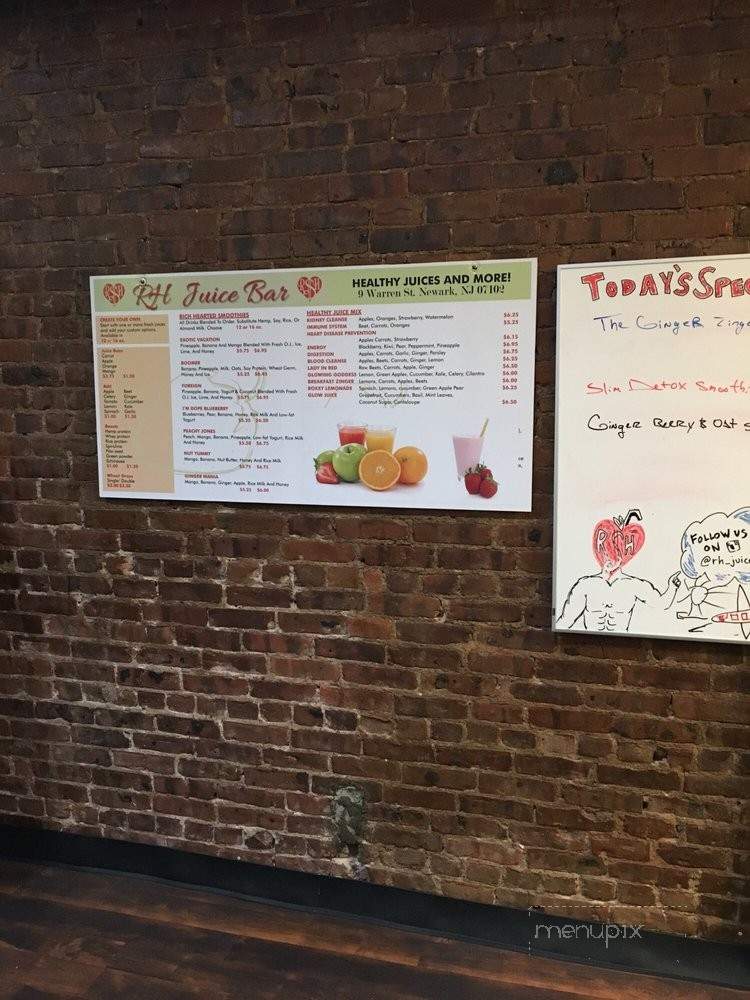 RH Juice Bar
HEALTHY JUICES AND MORE!
9 Warren St. Newark, NJ 07102
CREATE YOUR OWN
Start with one or more fresh juices
and add your custom options.
Available in
12 or 16 oz.
Juice Base
Carrot
Apple
Orange
Mango
Add
Apple Beet
Celery Ginger
Tomato Cucumber
Lemon Kale
Spinach Garlic
$1.00 $1.50
Boosts
Hemp protein
Whey protein
Rice protein
Spirulina
Flax seed
Green powder
Echinacea
$1.00
Wheat Grass
Single/ Double
RICH HEARTED SMOOTHIES
All Drinks Blended To Order. Substitute Hemp, Soy, Rice, Or
Almond Milk. Choose 12 or 16 oz.
EXOTIC VACATION
Pineapple, Banana And Mango Blended With Fresh O.J., Ice,
Lime, And Honey $5.75 $6.95
BOOMER
Banana, Pineapple, Milk, Oats, Soy Protein, Wheat Germ,
Honey and Ice $5.25 $6.45
FOREIGN
Pineapple, Banana, Yogurt & Coconut Blended With Fresh
O.J. Ice, Lime, And Honey $5.75 $6.95
I'M DOPE BLUEBERRY
Blueberries, Pear, Banana, Honey, Rice Milk And Low-fat
Yogurt $5.25 $6.50
PEACHY JONES
Peach, Mango, Banana, Pineapple, Low-fat Yogurt, Rice Milk
And Honey $5.50 $6.75
NUT YUMMY
Mango, Banana, Nut Butter, Honey And Rice Milk
$5.75 $6.75
GINGER MANIA
Mango, Banana, Ginger, Apple, Rice Milk And Honey
$5.25 $6.00
HEALTHY JUICE MIX
KIDNEY CLEANSE Apples, Oranges, Strawberry, Watermelon $6.25
IMMUNE SYSTEM Beet, Carrots, Oranges $5.25
HEART DISEASE PREVENTION
Apples Carrots, Strawberry $6.15
ENERGY Blackberry, Kiwi, Pear, Peppermint, Pineapple $6.95
DIGESTION Apples, Carrots, Garlic, Ginger, Parsley $6.75
BLOOD CLEANSE Apples, Beets, Carrots, Ginger, Lemon $6.25
LADY IN RED Raw Beets, Carrots, Apple, Ginger $6.50
GLOWING GODDESS Lemon, Green Apples, Cucumber, Kale, Celery, Cilantro $6.00
BREAKFAST ZINGER Lemons, Carrots, Apples, Beets $6.00
ROXEY LEMONADE Spinach, Lemons, cucumber, Green Apple Pear $6.25
GLOW JUICE Grapefruit, Cucumbers, Basil, Mint Leaves,
Coconut Sugar, Cantaloupe $6.50
TODAY'S SPEC
The Ginger Zinge
Slim Detox Smooth
Ginger Berry & Oat S
RH
FOLLOW US
ON
@rh_juice
menupix